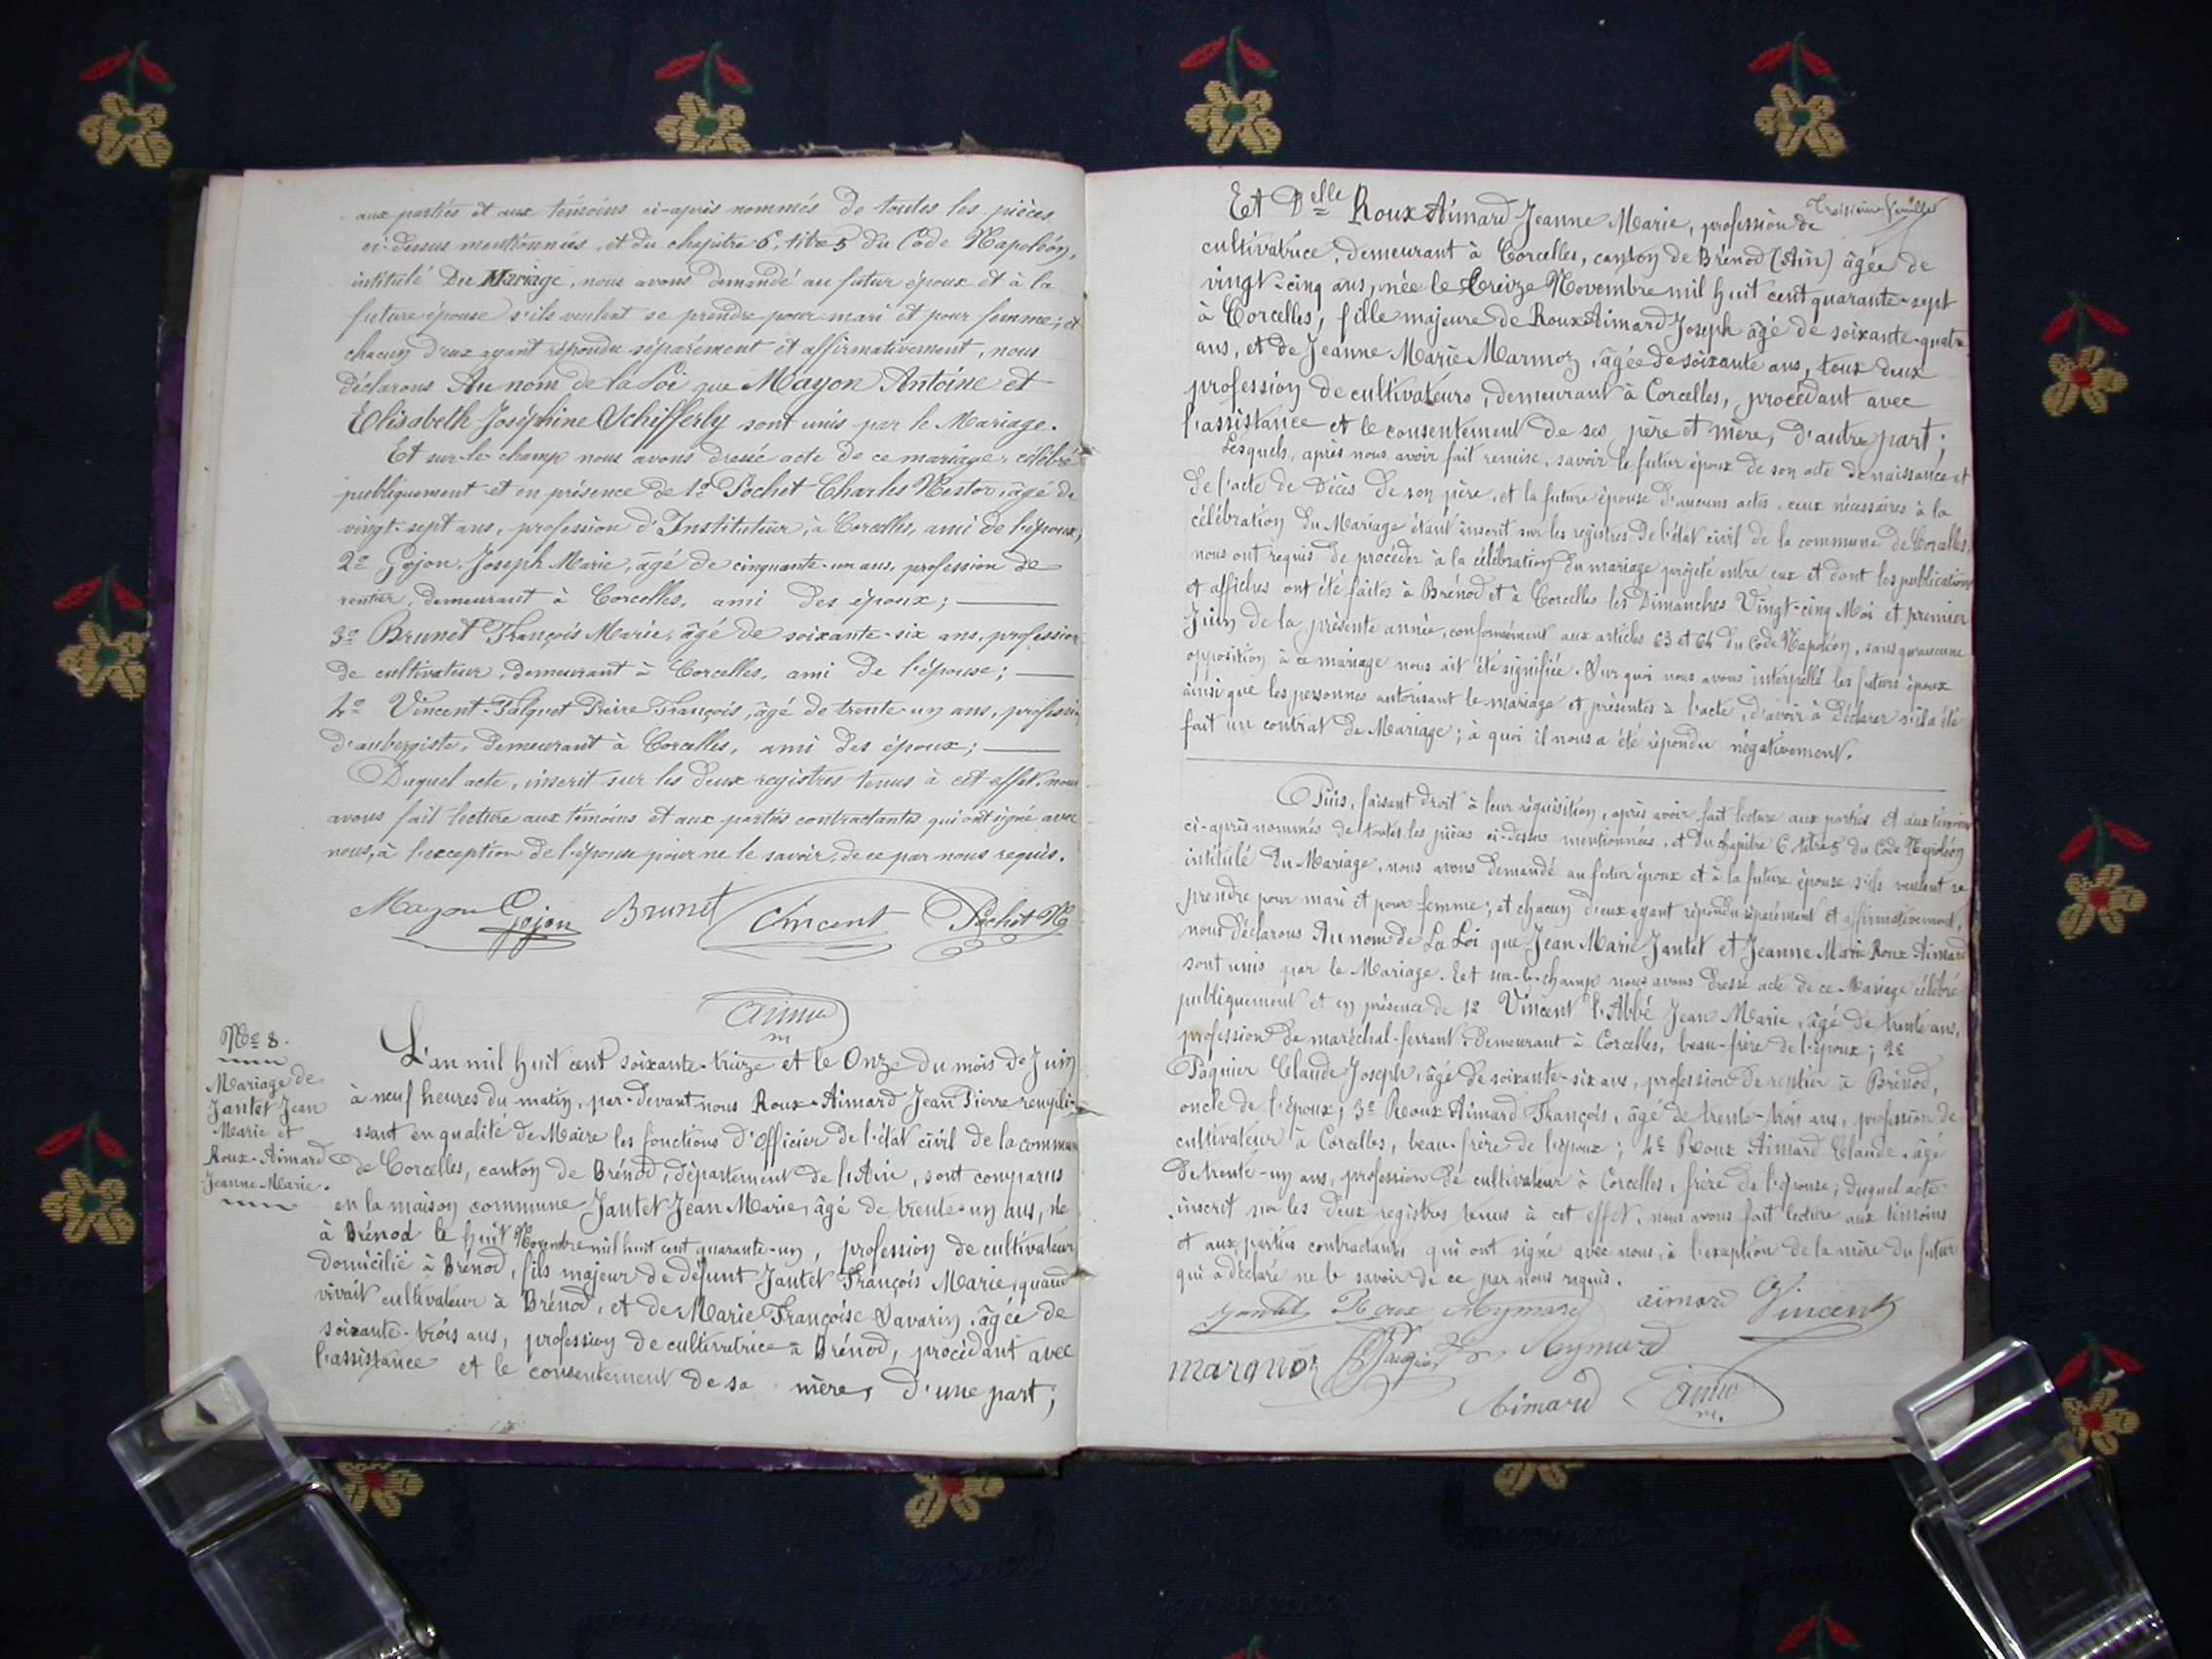 aux parties et aux témoins ci-après nommés de toutes les pièces
ci-dessus mentionnées, et du chapitre 6, titre 5 du Code Napoléon,
intitulé Du Mariage, nous avons demandé au futur époux et à la
future épouse s'ils veulent se prendre pour mari et pour femme; et
chacun d'eux ayant répondu séparément et affirmativement, nous
déclarons Au nom de la Loi que Mayon Antoine et
Elisabeth Joséphine Schifferly sont unis par le Mariage.
Et sur-le-champ nous avons dressé acte de ce mariage, célébré
publiquement et en présence de 1º Pochet Charles Nestor, âgé de
vingt-sept ans, profession d'Instituteur, à Corcelles, ami de l'époux;
2º Gojon Joseph Marie, âgé de cinquante-un ans, profession de
rentier, demeurant à Corcelles, ami des époux;
3º Brunet François Marie, âgé de soixante-six ans, profession
de cultivateur, demeurant à Corcelles, ami de l'épouse;
4º Vincent-Falquet Pierre François, âgé de trente-un ans, profession
d'aubergiste, demeurant à Corcelles, ami des époux;
Duquel acte, inscrit sur les deux registres tenus à cet effet, nous
avons fait lecture aux témoins et aux parties contractantes qui ont signé avec
nous, à l'exception de l'épouse pour ne le savoir, de ce par nous requis.
Mayon Gojon Brunet Vincent Pochet N
Nº 8.
Mariage de
Jantet Jean
Marie et
Roux-Aimard
Jeanne-Marie.
L'an mil huit cent soixante-treize et le Onze du mois de Juin
à neuf heures du matin, par-devant nous Roux-Aimard Jean Pierre rempli-
ssant en qualité de Maire les fonctions d'Officier de l'état civil de la commune
de Corcelles, canton de Brénod, département de l'Ain, sont comparus
en la maison commune Jantet Jean Marie, âgé de trente-un ans, né
à Brénod le huit Novembre mil huit cent quarante-un, profession de cultivateur
domicilié à Brénod, fils majeur de défunt Jantet François Marie, quand
vivait cultivateur à Brénod, et de Marie Françoise Savarin, âgée de
soixante-trois ans, profession de cultivatrice à Brénod, procédant avec
l'assistance et le consentement de sa mère, d'une part;
Troisième feuillet
Et Delle Roux Aimard Jeanne Marie, profession de
cultivatrice, demeurant à Corcelles, canton de Brénod (Ain) âgée de
vingt-cinq ans, née le treize Novembre mil huit cent quarante-sept
à Corcelles, fille majeure de Roux Aimard Joseph âgé de soixante-quatre
ans, et de Jeanne Marie Marmoz, âgée de soixante ans, tous deux
profession de cultivateurs, demeurant à Corcelles, procédant avec
l'assistance et le consentement de ses père et mère, d'autre part;
Lesquels, après nous avoir fait remise, savoir le futur époux de son acte de naissance et
de l'acte de Décès de son père, et la future épouse d'aucuns actes, ceux nécessaires à la
célébration du Mariage étant inscrit sur les registres de l'état civil de la commune de Corcelles,
nous ont requis de procéder à la célébration du mariage projeté entre eux et dont les publications
et affiches ont été faites à Brénod et à Corcelles les Dimanches Vingt-cinq Mai et premier
Juin de la présente année, conformément aux articles 63 et 64 du Code Napoléon, sans qu'aucune
opposition à ce mariage nous ait été signifiée. Sur quoi nous avons interpellé les futurs époux
ainsi que les personnes autorisant le mariage et présentes à l'acte, d'avoir à déclarer s'il a été
fait un contrat de Mariage; à quoi il nous a été répondu négativement.
Puis, faisant droit à leur réquisition, après avoir fait lecture aux parties et aux témoins
ci-après nommés de toutes les pièces ci-dessus mentionnées, et du chapitre 6 titre 5 du Code Napoléon
intitulé Du Mariage, nous avons demandé au futur époux et à la future épouse s'ils veulent se
prendre pour mari et pour femme; et chacun d'eux ayant répondu séparément et affirmativement,
nous déclarons Au nom de La Loi que Jean Marie Jantet et Jeanne Marie Roux Aimard
sont unis par le Mariage. Et sur-le-champ nous avons dressé acte de ce Mariage célébré
publiquement et en présence de 1º Vincent l'Abbé Jean Marie, âgé de trente ans,
profession de maréchal-ferrant, demeurant à Corcelles, beau-frère de l'époux; 2º
Paquier Claude Joseph, âgé de soixante-six ans, profession de rentier à Brénod,
oncle de l'époux; 3º Roux Aimard François, âgé de trente-trois ans, profession de
cultivateur à Corcelles, beau-frère de l'époux; 4º Roux Aimard Claude, âgé
de trente-un ans, profession de cultivateur à Corcelles, frère de l'épouse; duquel acte
inscrit sur les deux registres tenus à cet effet, nous avons fait lecture aux témoins
et aux parties contractantes qui ont signé avec nous, à l'exception de la mère du futur
qui a déclaré ne le savoir de ce par nous requis.
Jantet Roux Aymard aimard Vincent
Paquier Aymard
Aimard